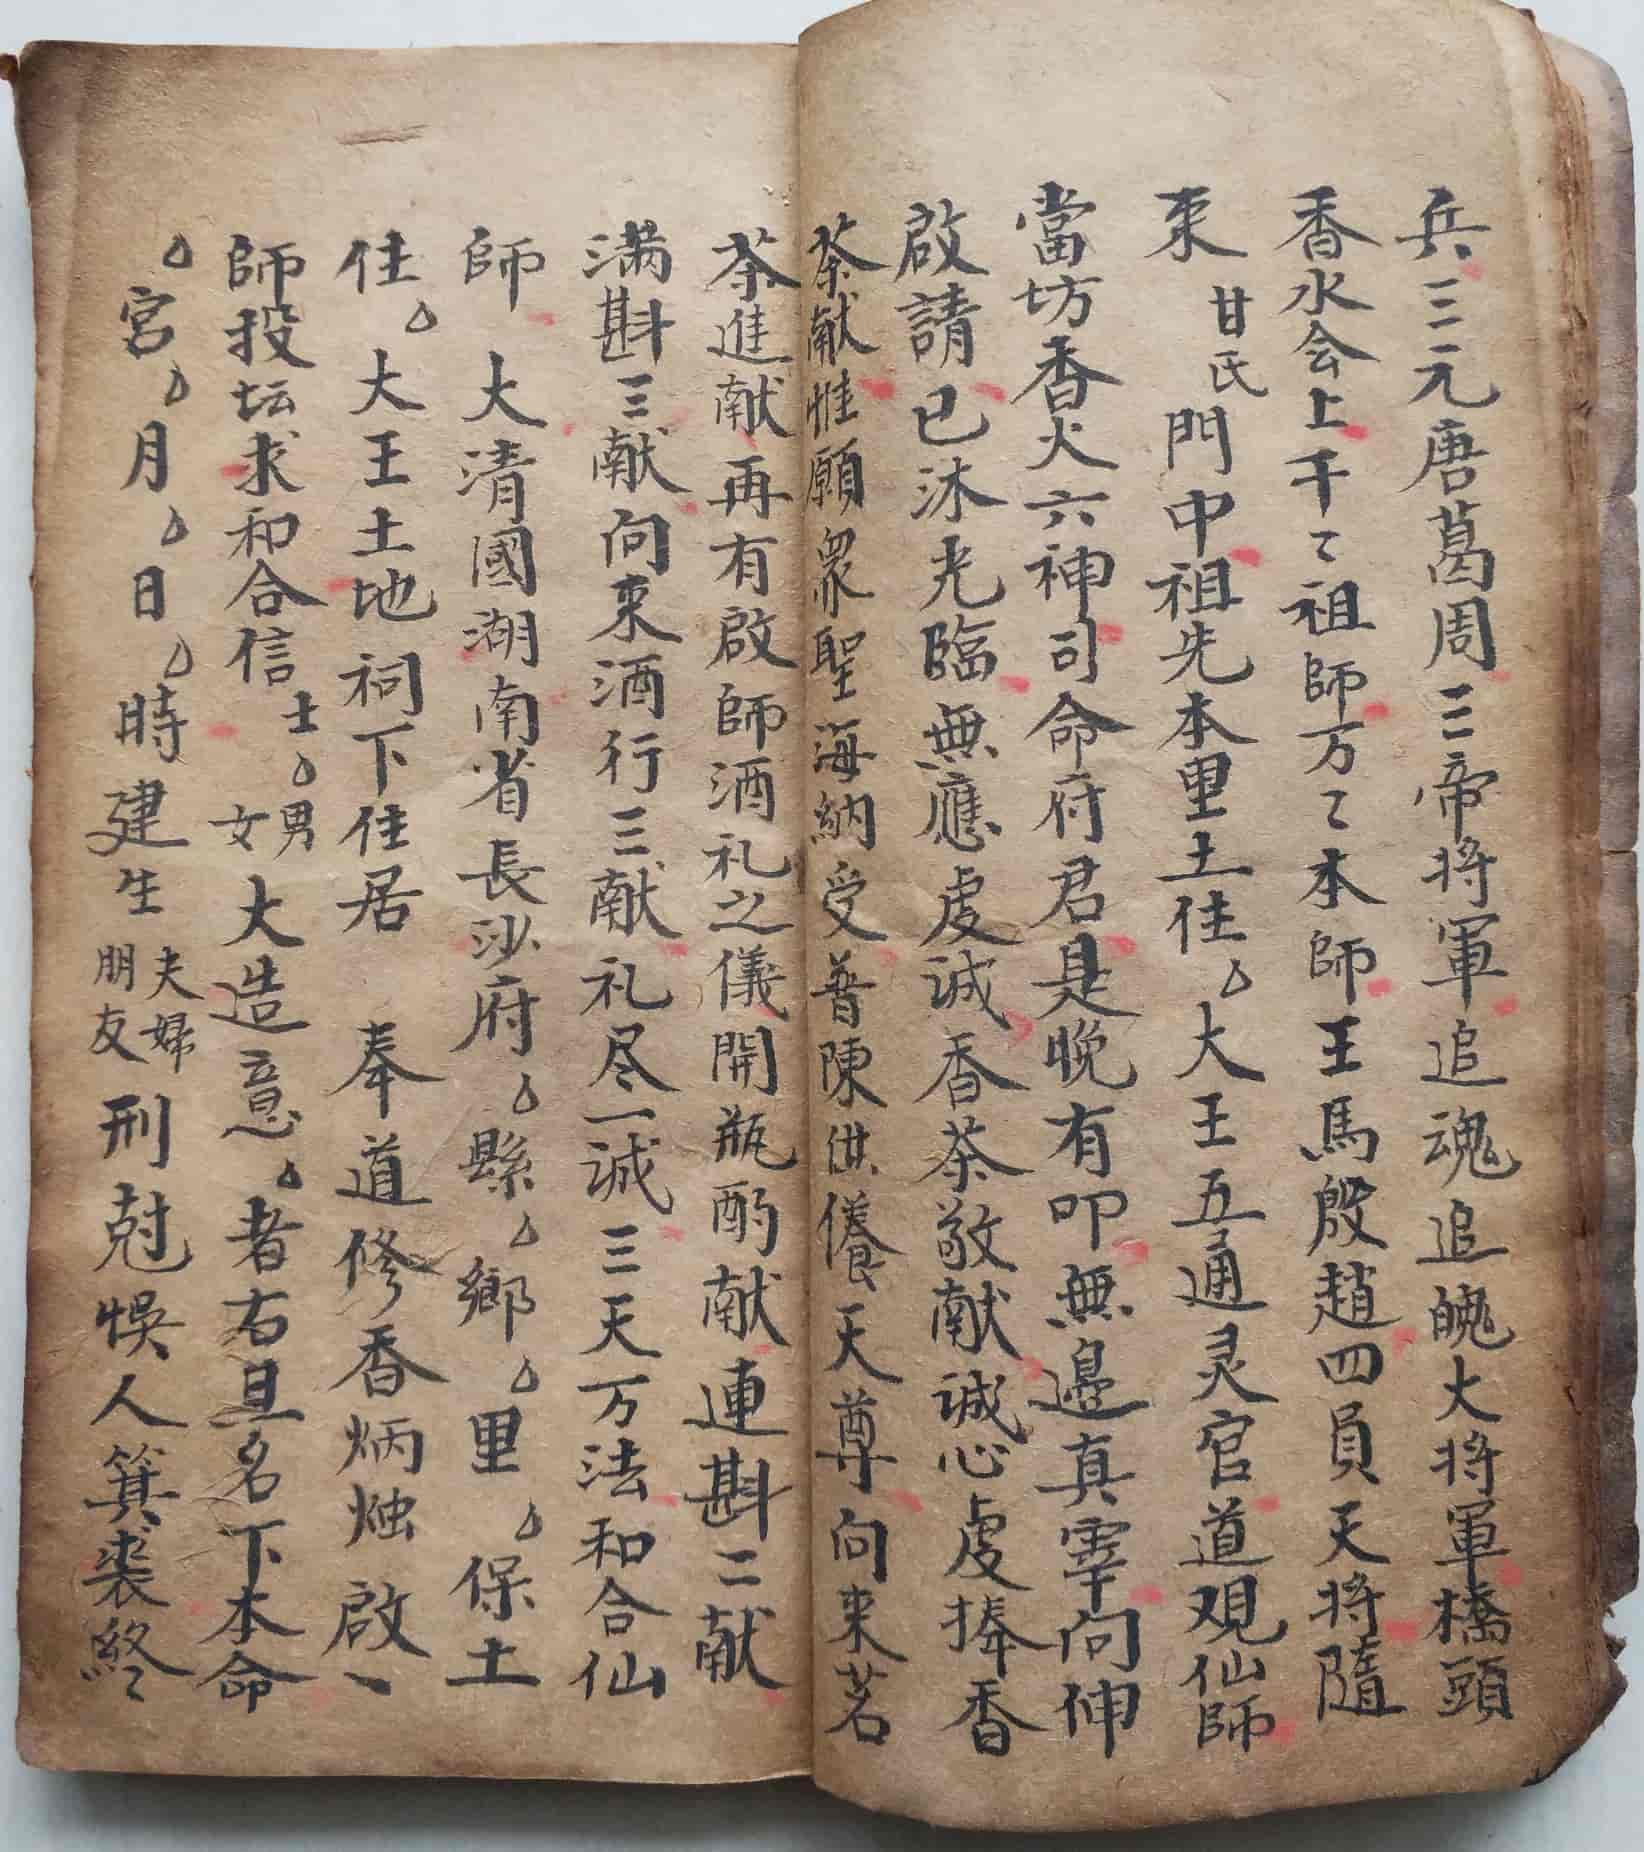 兵三元唐葛周三帝将軍追魂追魄大将軍橋頭
香水会上千〻祖師万〻本師王馬殷趙四員天将随
来甘氏門中祖先本里土住〇大王五通灵官道观仙師
當坊香火六神司命府君是晚有叩無邊真宰向伸
啟請已沐光臨無應虔诚香茶敬献诚心虔捧香
茶献惟願眾聖海納受普陳供養天尊向来茗
茶進献再有啟師酒礼之儀開瓶酌献連斟二献
满斟三献向来酒行三献礼尽一诚三天万法和合仙
師 大清國湖南省長沙府〇縣〇鄉〇里〇保土
住〇大王土地祠下住居 奉道修香炳烛啟丶
師投坛求和合信士〇男女大造意〇者右旦名下本命
〇宫〇月〇日〇時建生夫婦朋友刑尅悞人箕裘終